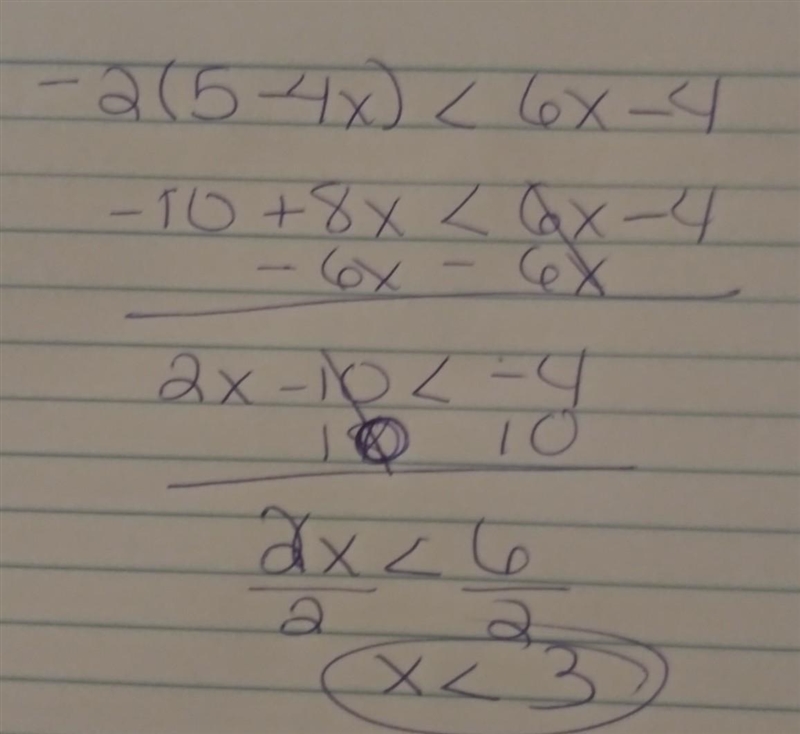 -2(5-4x) < 6x-4
-10 +8x < 6x-4
-6x - 6x
2x -10 < -4
10 10
2x < 6
2 2
x < 3